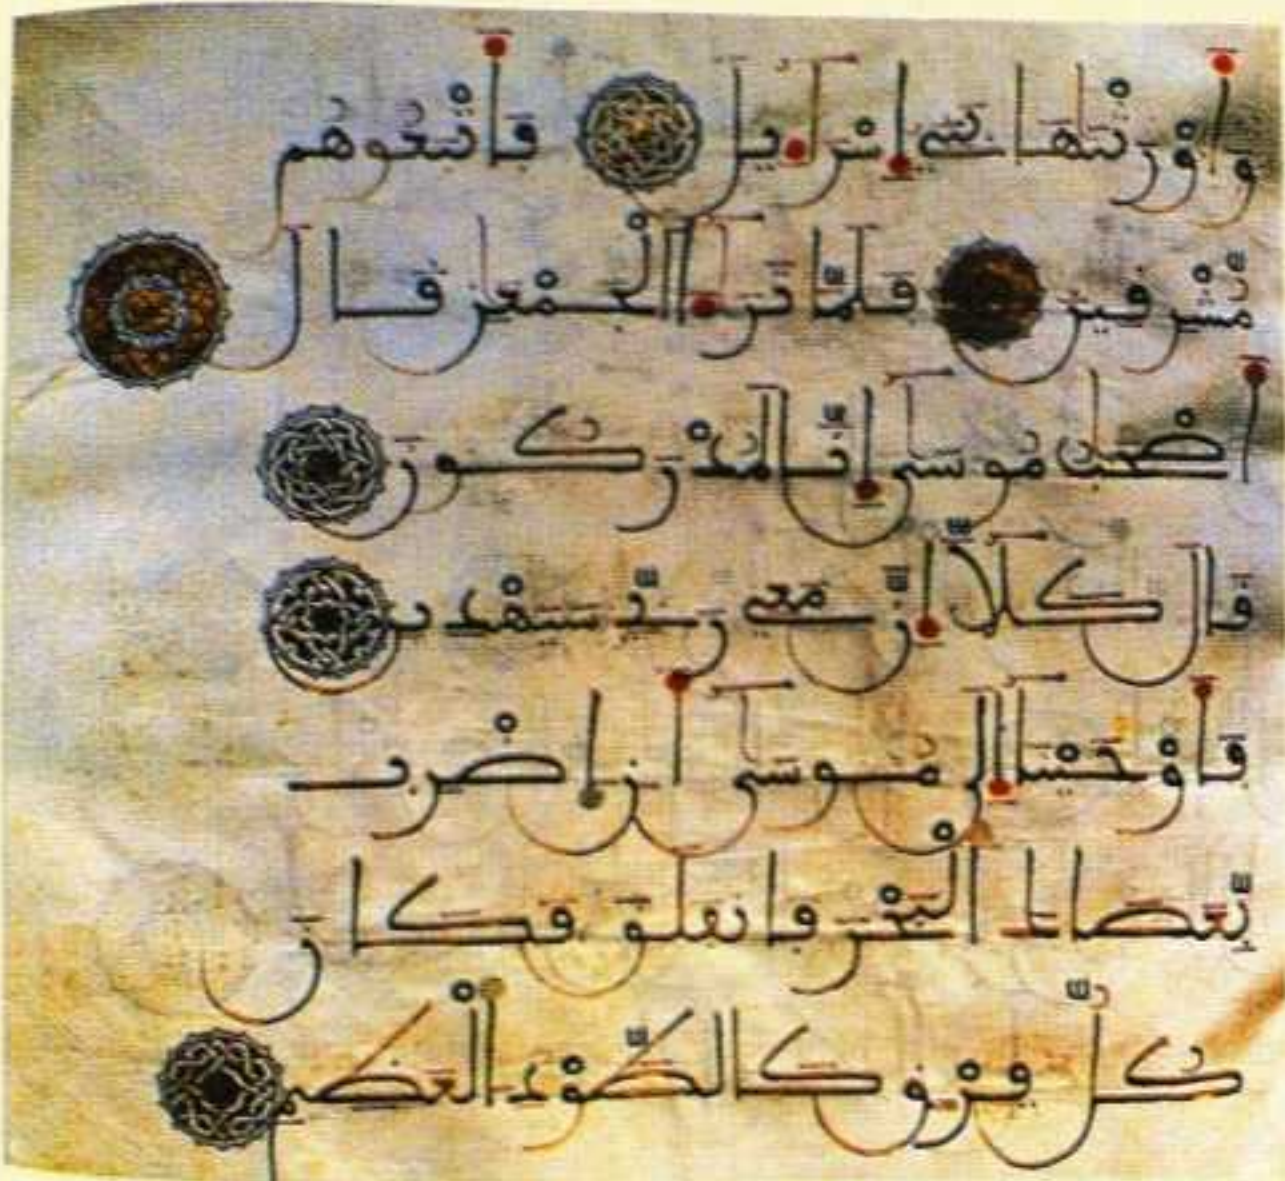 وَأَوْرَثْنَٰهَا بَنِي إِسْرَآءِيلَ فَأَتْبَعُوهُم
مُّشْرِقِينَ فَلَمَّا تَرَٰٓءَا اَلْجَمْعَٰنِ قَالَ
أَصْحَٰبُ مُوسَىٰٓ إِنَّا لَمُدْرَكُونَ
قَالَ كَلَّآ إِنَّ مَعِي رَبِّي سَيَهْدِينِ
فَأَوْحَيْنَآ إِلَىٰ مُوسَىٰٓ أَنِ اِضْرِب
بِّعَصَاكَ اَلْبَحْرَ فَانفَلَقَ فَكَانَ
كُلُّ فِرْقٍ كَالطَّوْدِ اِلْعَظِيمِ